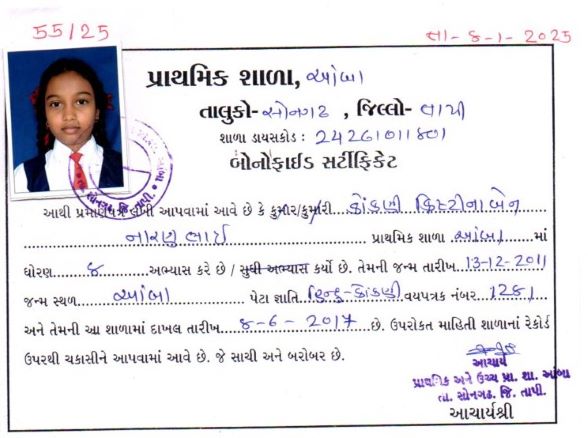 55/25
તા- ૪-૧- 2025
પ્રાથમિક શાળા, આંબા
તાલુકો- સોનગઢ , જિલ્લો- તાપી
શાળા ડાયસકોડ : 24261011801
બોનોફાઈડ સર્ટીફિકેટ
આથી પ્રમાણપત્ર લખી આપવામાં આવે છે કે કુમાર/કુમારી કોંકણી ક્રિસ્ટીનાબેન
નારણભાઈ પ્રાથમિક શાળા આંબા માં
ધોરણ ૮ અભ્યાસ કરે છે / સુધી અભ્યાસ કર્યો છે. તેમની જન્મ તારીખ 13-12-2011
જન્મ સ્થળ આંબા પેટા જ્ઞાતિ હિન્દુ-કોંકણી વયપત્રક નંબર 1281
અને તેમની આ શાળામાં દાખલ તારીખ ૪-6-2017 છે. ઉપરોકત માહિતી શાળાનાં રેકોર્ડ
ઉપરથી ચકાસીને આપવામાં આવે છે. જે સાચી અને બરોબર છે.
આચાર્ય
પ્રાથમિક અને ઉચ્ચ પ્રા. શા. આંબા
તા. સોનગઢ. જિ. તાપી.
આચાર્યશ્રી
તા. સોનગઢ, જિ. તાપી.